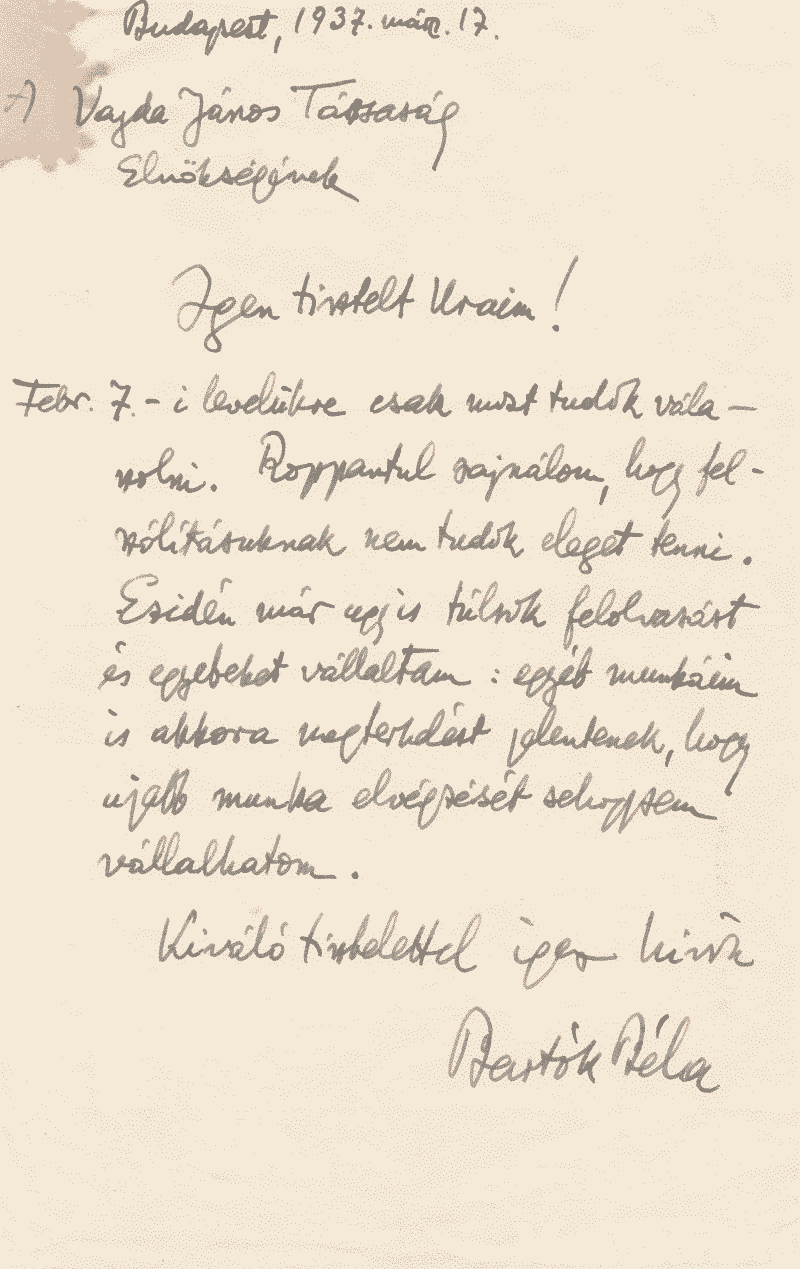 Budapest, 1937. márc. 17.
A) Vajda János Társaság
Elnökségének
Igen tisztelt Uraim!
Febr. 7.-i levelükre csak most tudok vála-
szolni. Roppantul sajnálom, hogy fel-
szólításuknak nem tudok eleget tenni.
Ezidén már ugyis túlsok felolvasást
és egyebeket vállaltam: egyéb munkáim
is akkora megterhelést jelentenek, hogy
ujabb munka elvégzését sehogysem
vállalhatom.
Kiváló tisztelettel igaz hivök
Bartók Béla